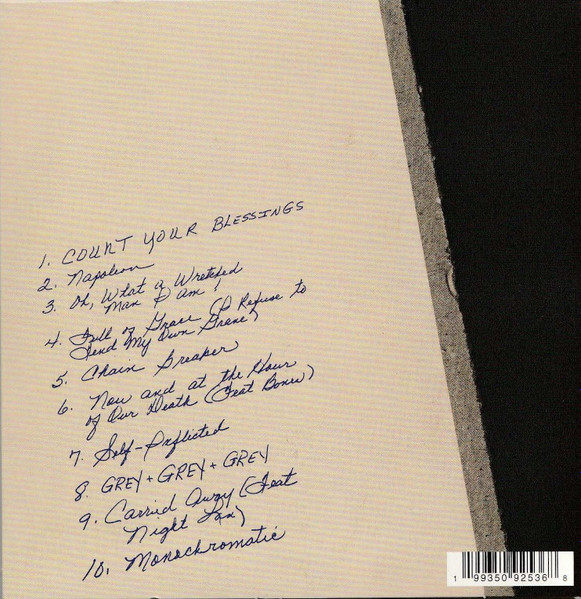 1. COUNT YOUR BLESSINGS
2. Napoleon
3. Oh, What a Wretched
Man I am!
4. Full of Grace (I Refuse to
Tend My Own Grave)
5. Chain Breaker
6. Now and at the Hour
of Our Death (Feat Bones)
7. Self-Inflicted
8. GREY + GREY + GREY
9. Carried Away (Feat
Night Lux)
10. Monochromatic
1 99350 92536 8